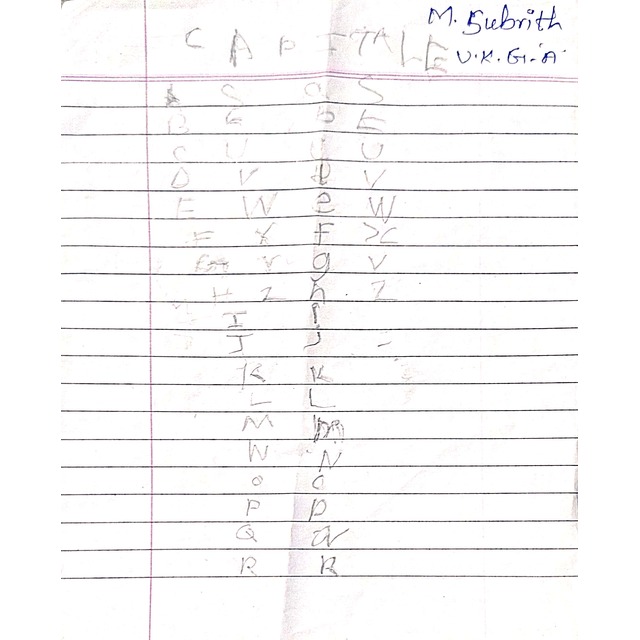 M. Subrith
U.K.G.-A
CAPITALE
A S a S
B E b E
C U U
D V d V
E W e W
F X F >C
G Y g V
H Z h Z
I i
J J
K K
L L
M m
W N
o o
P p
Q
R R